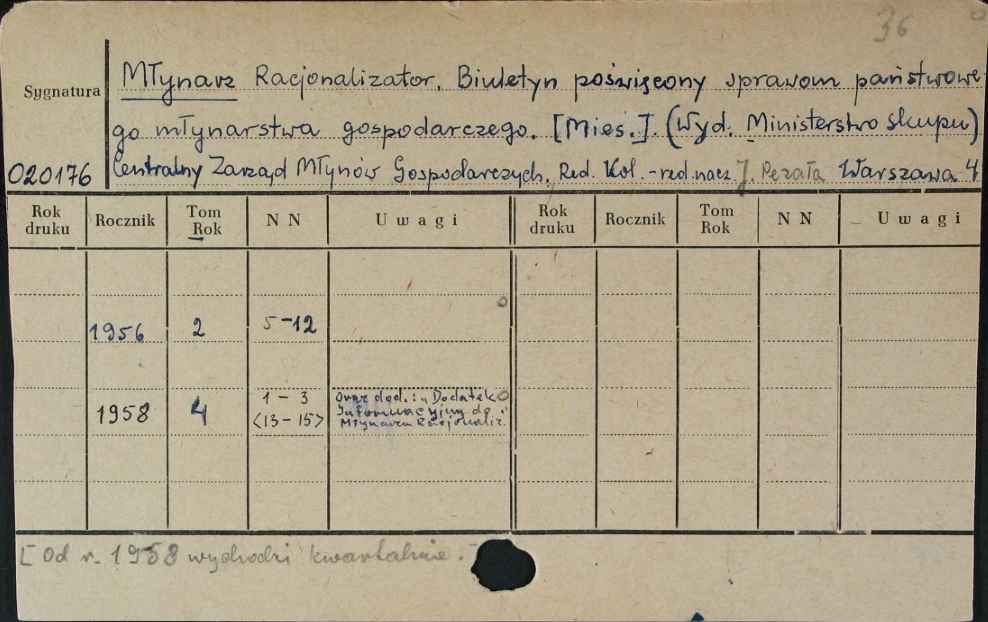 36
Sygnatura
Młynarz Racjonalizator. Biuletyn poświęcony sprawom państwowe-
go młynarstwa gospodarczego. [Mies.]. (Wyd. Ministerstwo Skupu)
020176 Centralny Zarząd Młynów Gospodarczych. Red. Kol. - red. nacz. J. Perała Warszawa 4
Rok druku Rocznik Tom Rok NN Uwagi Rok druku Rocznik Tom Rok NN Uwagi
1956 2 5-12
1958 4 1-3 <13-15> Oraz dod.: "Dodatek
Informacyjny do
Młynarza Racjonaliz.
[Od r. 1958 wychodzi kwartalnie.]